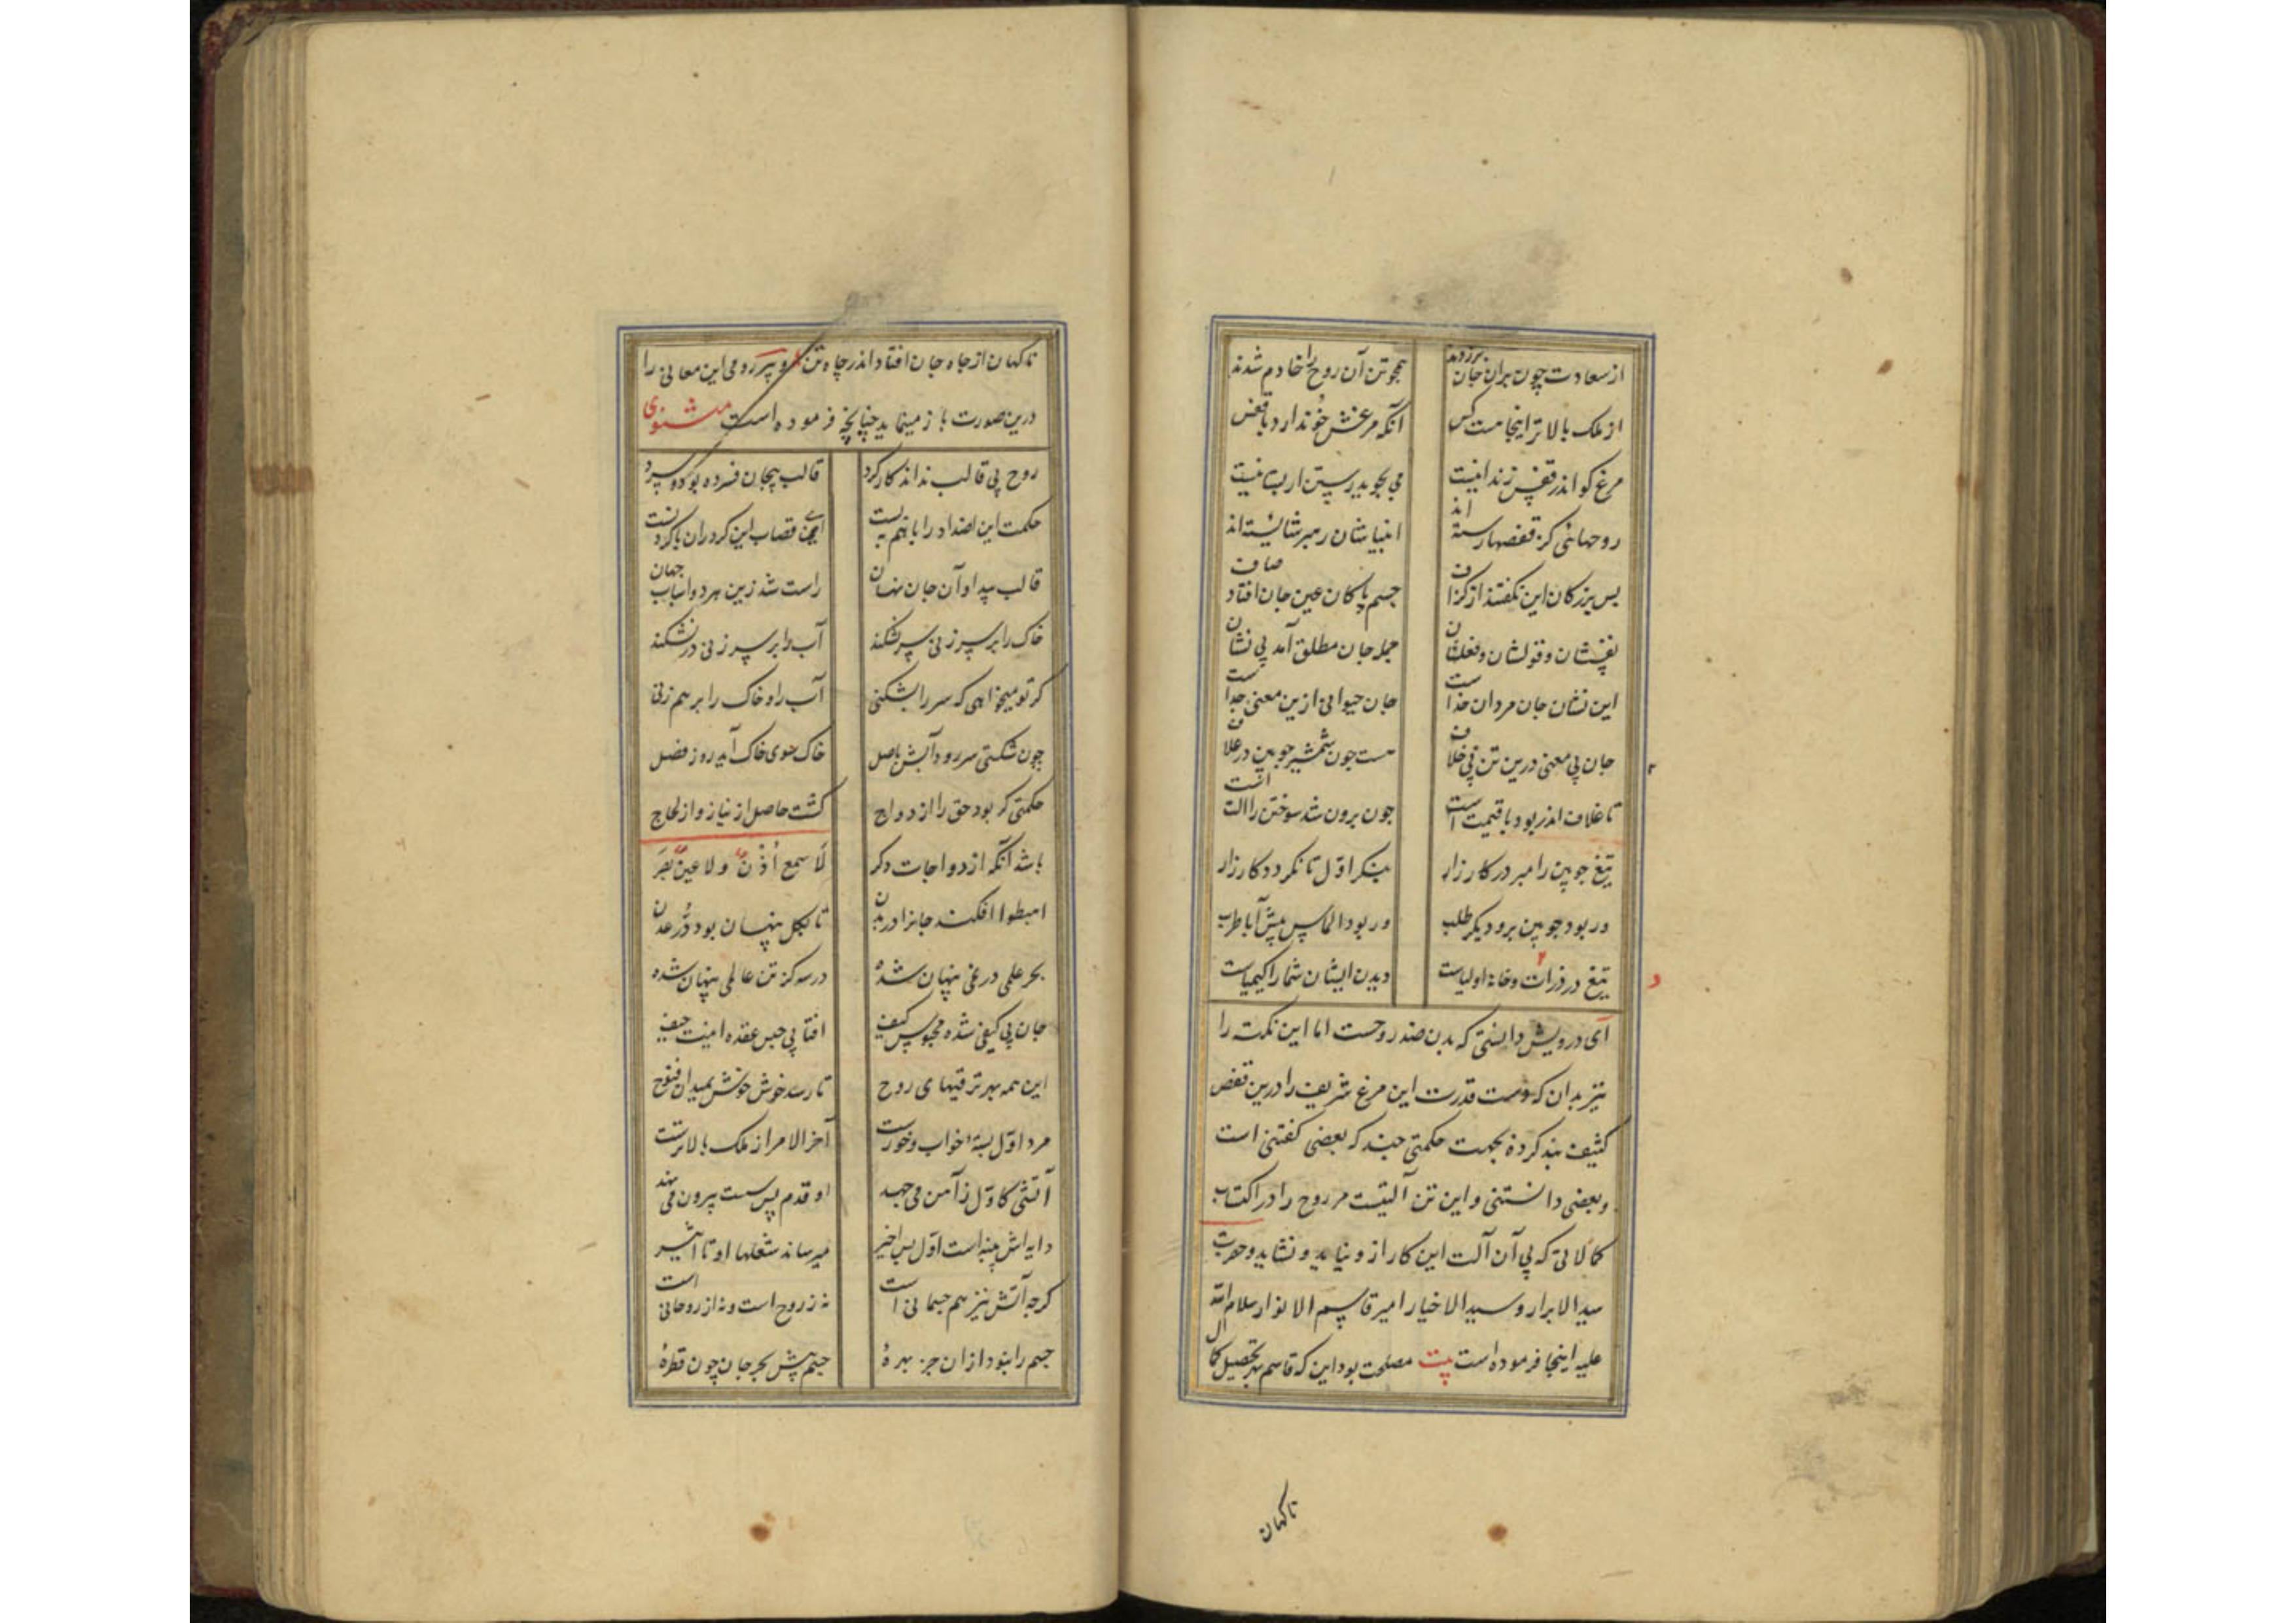 از سعادت چون بران جان برزدند همچو تن آن روح را خادم شدند
از ملک بالاتر اینجا هست کس آنکه مرغش خو ندارد با قفس
مرغ کو اندر قفس زندانیست می بجوید رستن از
روحهائی کز قفصها رسته اند انبیاشان رهبر شایسته اند
پس بزرکان این نکفتند از کزاف جسم پاکان عین جان افتاد صاف
نفسشان و قولشان و فعلشان جمله جان مطلق آمد بی نشان
این نشان جان مردان خداست جان حیوانی ازین معنی جداست
جان بی معنی درین تن بی خلاف هست چون شمشیر چوبین در غلاف
تا غلاف اندر بود با قیمت است چون برون شد سوختن را الت است
تیغ چوبین را مبر در کارزار بنکر اول تا نکردد کار زار
ور بود چوبین برو دیکر طلب ور بود الماس پیش آ با طرب
تیغ در زرادخانه اولیاست دیدن ایشان شما را کیمیاست
ای درویش دانستی که بدن ضد روحست اما این نکته را
نیز بدان که دست قدرت این مرغ شریف را درین قفص
کثیف بند کرده بجهت حکمتی چند که بعضی کفتنی است
و بعضی دانستنی و این تن آلتیست مر روح را در اکتساب
کمالاتی که بی آن آلت این کار ازو نیاید و نشاید و حضرت
سید الابرار و سید الاخیار امیر قاسم الانوار سلام الله
علیه اینجا فرموده است بیت مصلحت بود این که قاسم بهر تحصیل کمال
ناکهان
ناکهان از جاه جان افتاد اندر چاه تن و پیر رومی این معانی را
درین صورت باز مینماید چنانچه فرموده است مثنوی
روح بی قالب نداند کار کرد قالب بیجان فسرده بود و سرد
حکمت این اضداد را با هم ببست ای قصاب این کردران با کردنست
قالب پیدا و آن جان نهان راست شد زین هر دو اسباب جهان
خاک را بر سر زنی سر نشکند آب را بر سر زنی در نشکند
کر تو میخواهی که سر را بشکنی آب را و خاک را بر هم زنی
چون شکستی سر رود آبش باصل خاک سوی خاک آید روز فصل
حکمتی که بود حق را ازدواج کشت حاصل از نیاز و از لجاج
باشد آنکه ازدواجات دکر لا سمع اذن ولا عین بصر
اهبطوا افکند جانرا در بدن تا بکل پنهان بود در عدن
بحر علمی در نمی پنهان شده در سه کز تن عالمی پنهان شده
جان بی کیفی شده محبوس کیف افتابی حبس عقده اینت حیف
این همه بهر ترقیهای روح تا رسد خوش خوش بمیدان فتوح
مرد اول بسته خواب و خورست آخر الامر از ملک بالاترست
آتشی کاول ز آهن می جهد او قدم بس سست بیرون می نهد
دایه اش پنبه است اول بس اخیر میرساند شعلها او تا اثیر
کرچه آتش نیز هم جسمانی است نه ز روح است و نه از روحانی است
جسم را نبود ازان جز بهرهٔ جسم پیش بحر جان چون قطرهٔ